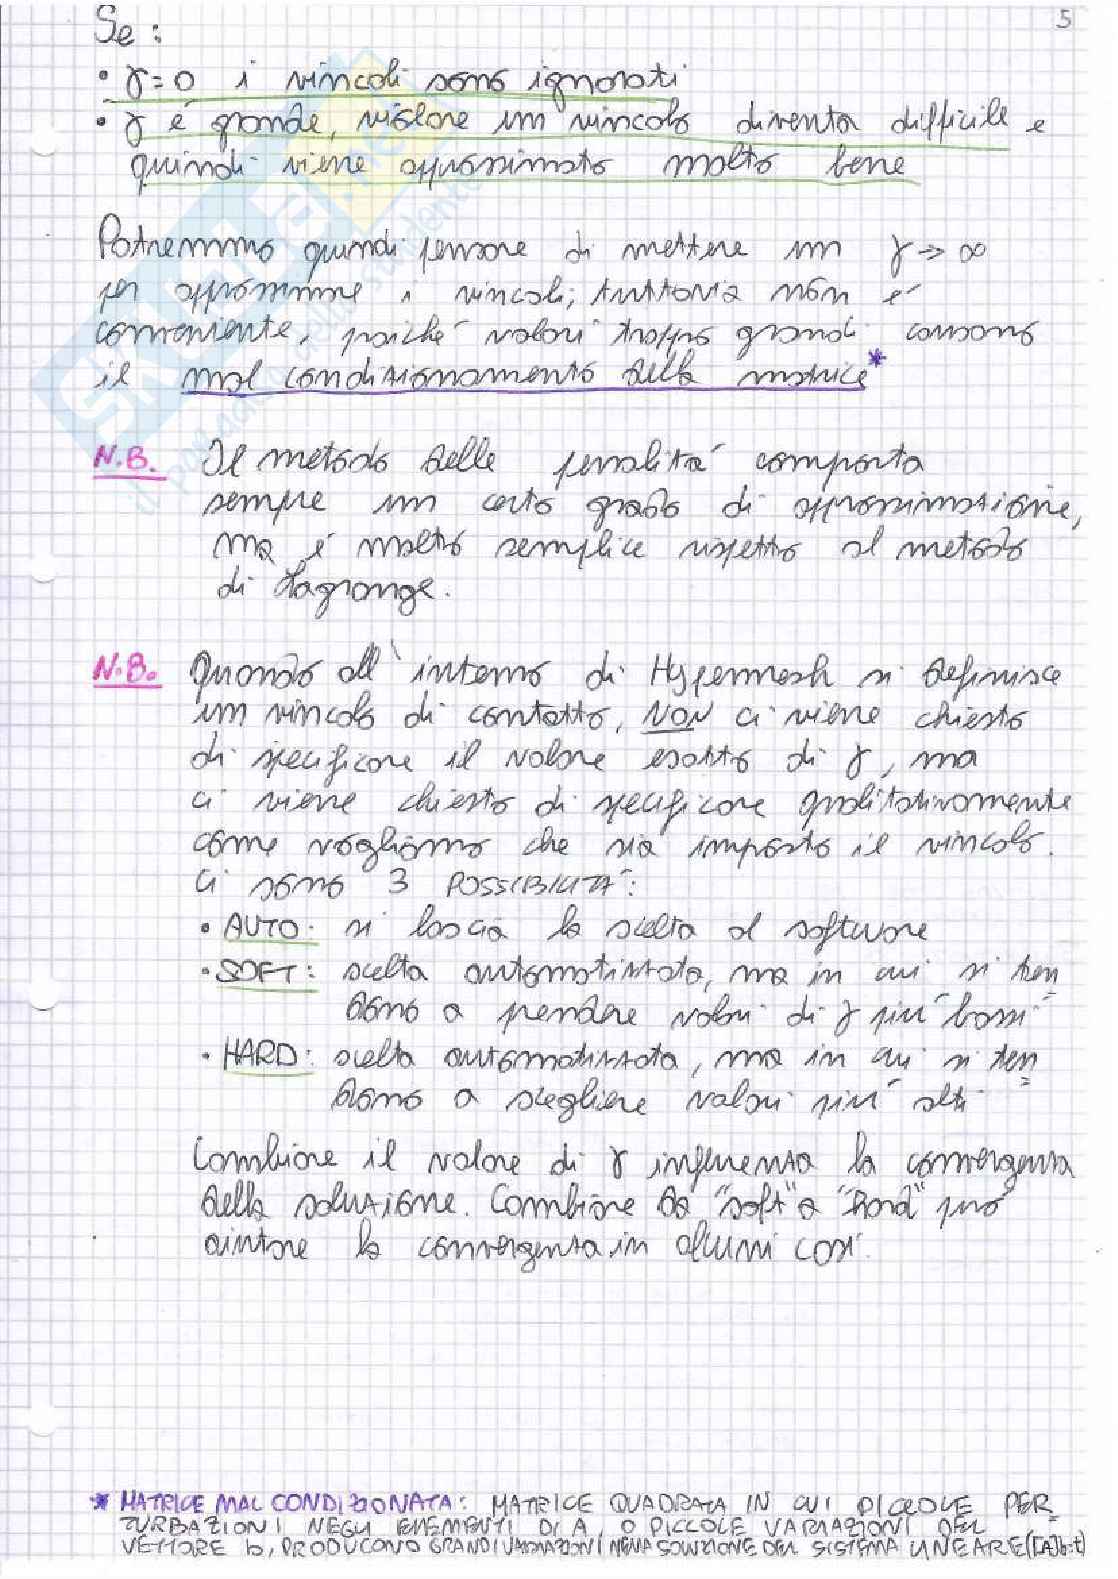 5
Se :
• γ=0 i vincoli sono ignorati
• γ é grande, violare un vincolo diventa difficile e
quindi viene approssimato molto bene
Potremmo quindi pensare di mettere un γ → ∞
per approssimare i vincoli; tuttavia non é
conveniente, poiché valori troppo grandi causano
il mal condizionamento della matrice*
N.B. Il metodo delle penalitá comporta
sempre un certo grado di approssimazione,
ma é molto semplice rispetto al metodo
di Lagrange.
N.B. Quando all'interno di Hypermesh si definisce
un vincolo di contatto, NON ci viene chiesto
di specificare il valore esatto di γ, ma
ci viene chiesto di specificare qualitativamente
come vogliamo che sia imposto il vincolo.
Ci sono 3 POSSIBILITÁ:
• AUTO: si lascia la scelta al software
• SOFT: scelta automatizzata, ma in cui si ten=
dono a prendere valori di γ piú bassi
• HARD: scelta automatizzata, ma in cui si ten=
dono a scegliere valori piú alti
Cambiare il valore di γ influenza la convergenza
della soluzione. Cambiare da "soft" a "hard" puó
aiutare la convergenza in alcuni casi.
* MATRICE MAL CONDIZIONATA: MATRICE QUADRATA IN CUI PICCOLE PER=
TURBAZIONI NEGLI ELEMENTI DI A, O PICCOLE VARIAZIONI DEL
VETTORE b, PRODUCONO GRANDI VARIAZIONI NELLA SOLUZIONE DEL SISTEMA LINEARE
SKUOLA.net
il paradiso dello studente